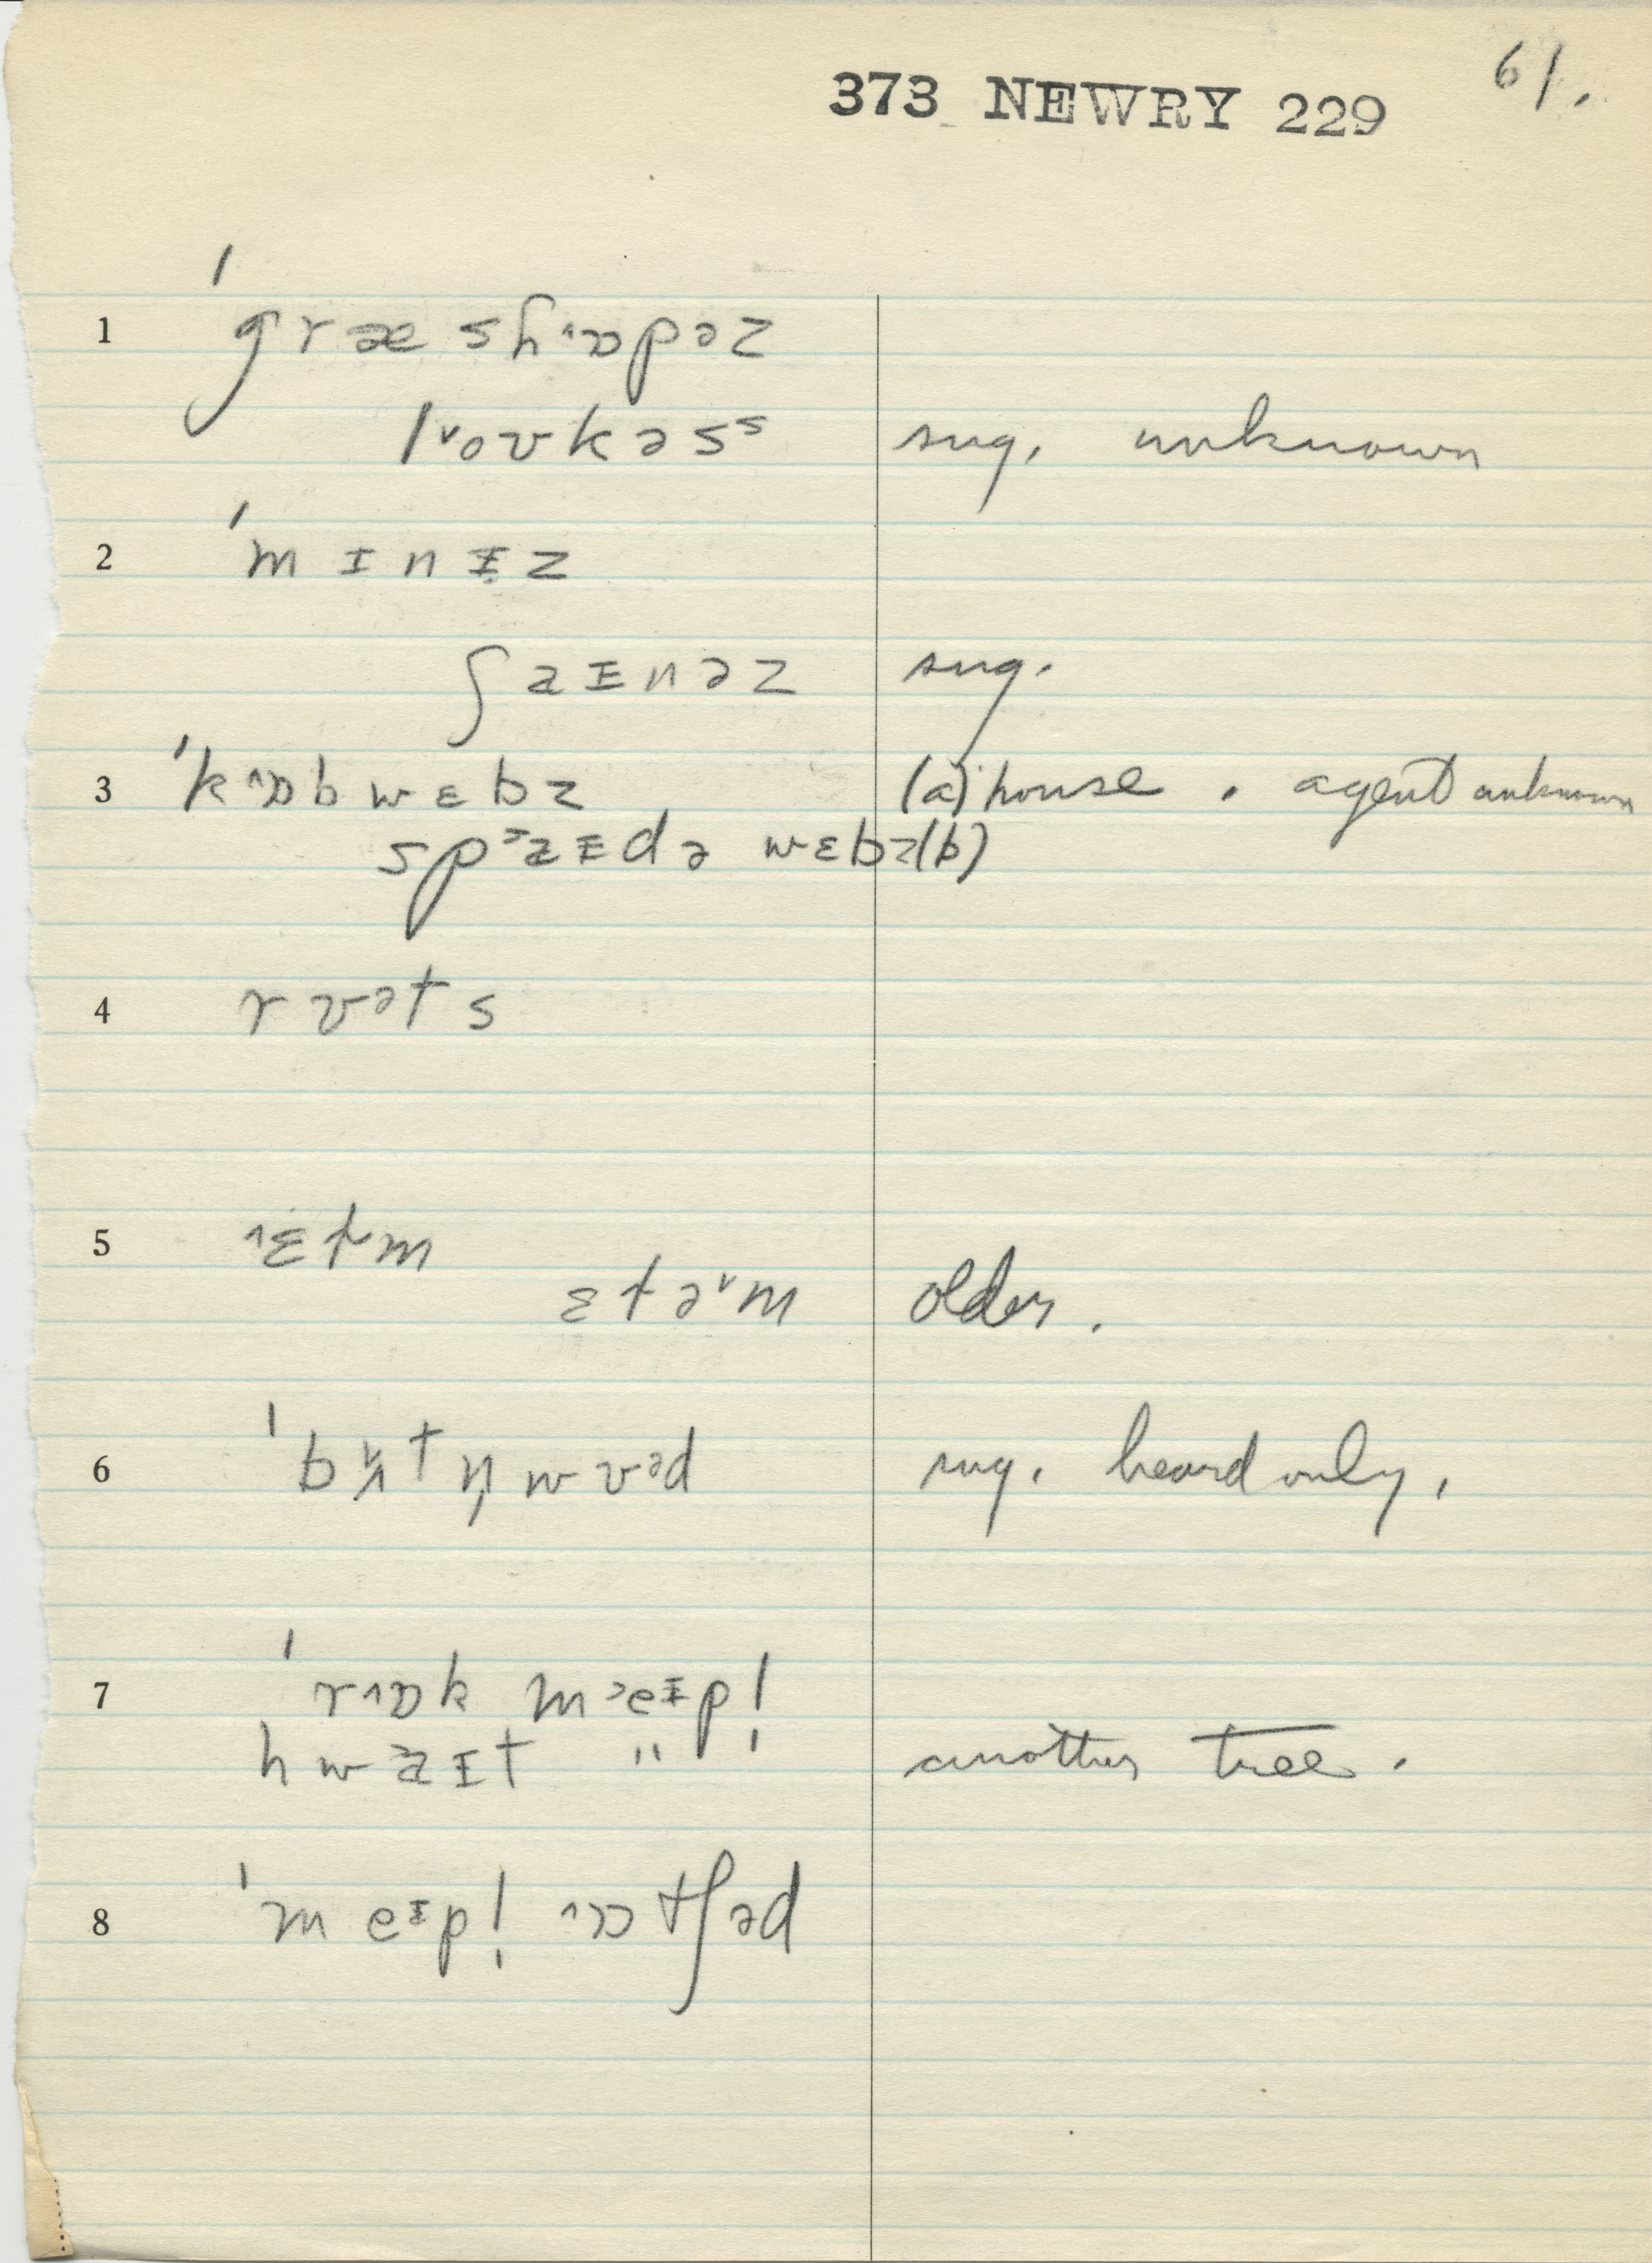 61.
373 NEWRY 229
1 ˈgræshɒ˄pəz
lo˅ʊkəsˢ sug. unknown
2 ˈmɪnɪz
ʃaɪnəz sug.
3 ˈk˄ɒbwɛbz (a) house. agent unknown
sp˃aɪdə wɛbz (b)
4 rʊəts
5 ˄ɛtm
ɛtə˅m older.
6 ˈbʌ˅tn̩wʊəd sug. heard only.
7 ˈr˄ɒk m˃eɪpl̩
hwaɪt " another tree.
8 ˈmeɪpl̩ ˄ɒtʃəd